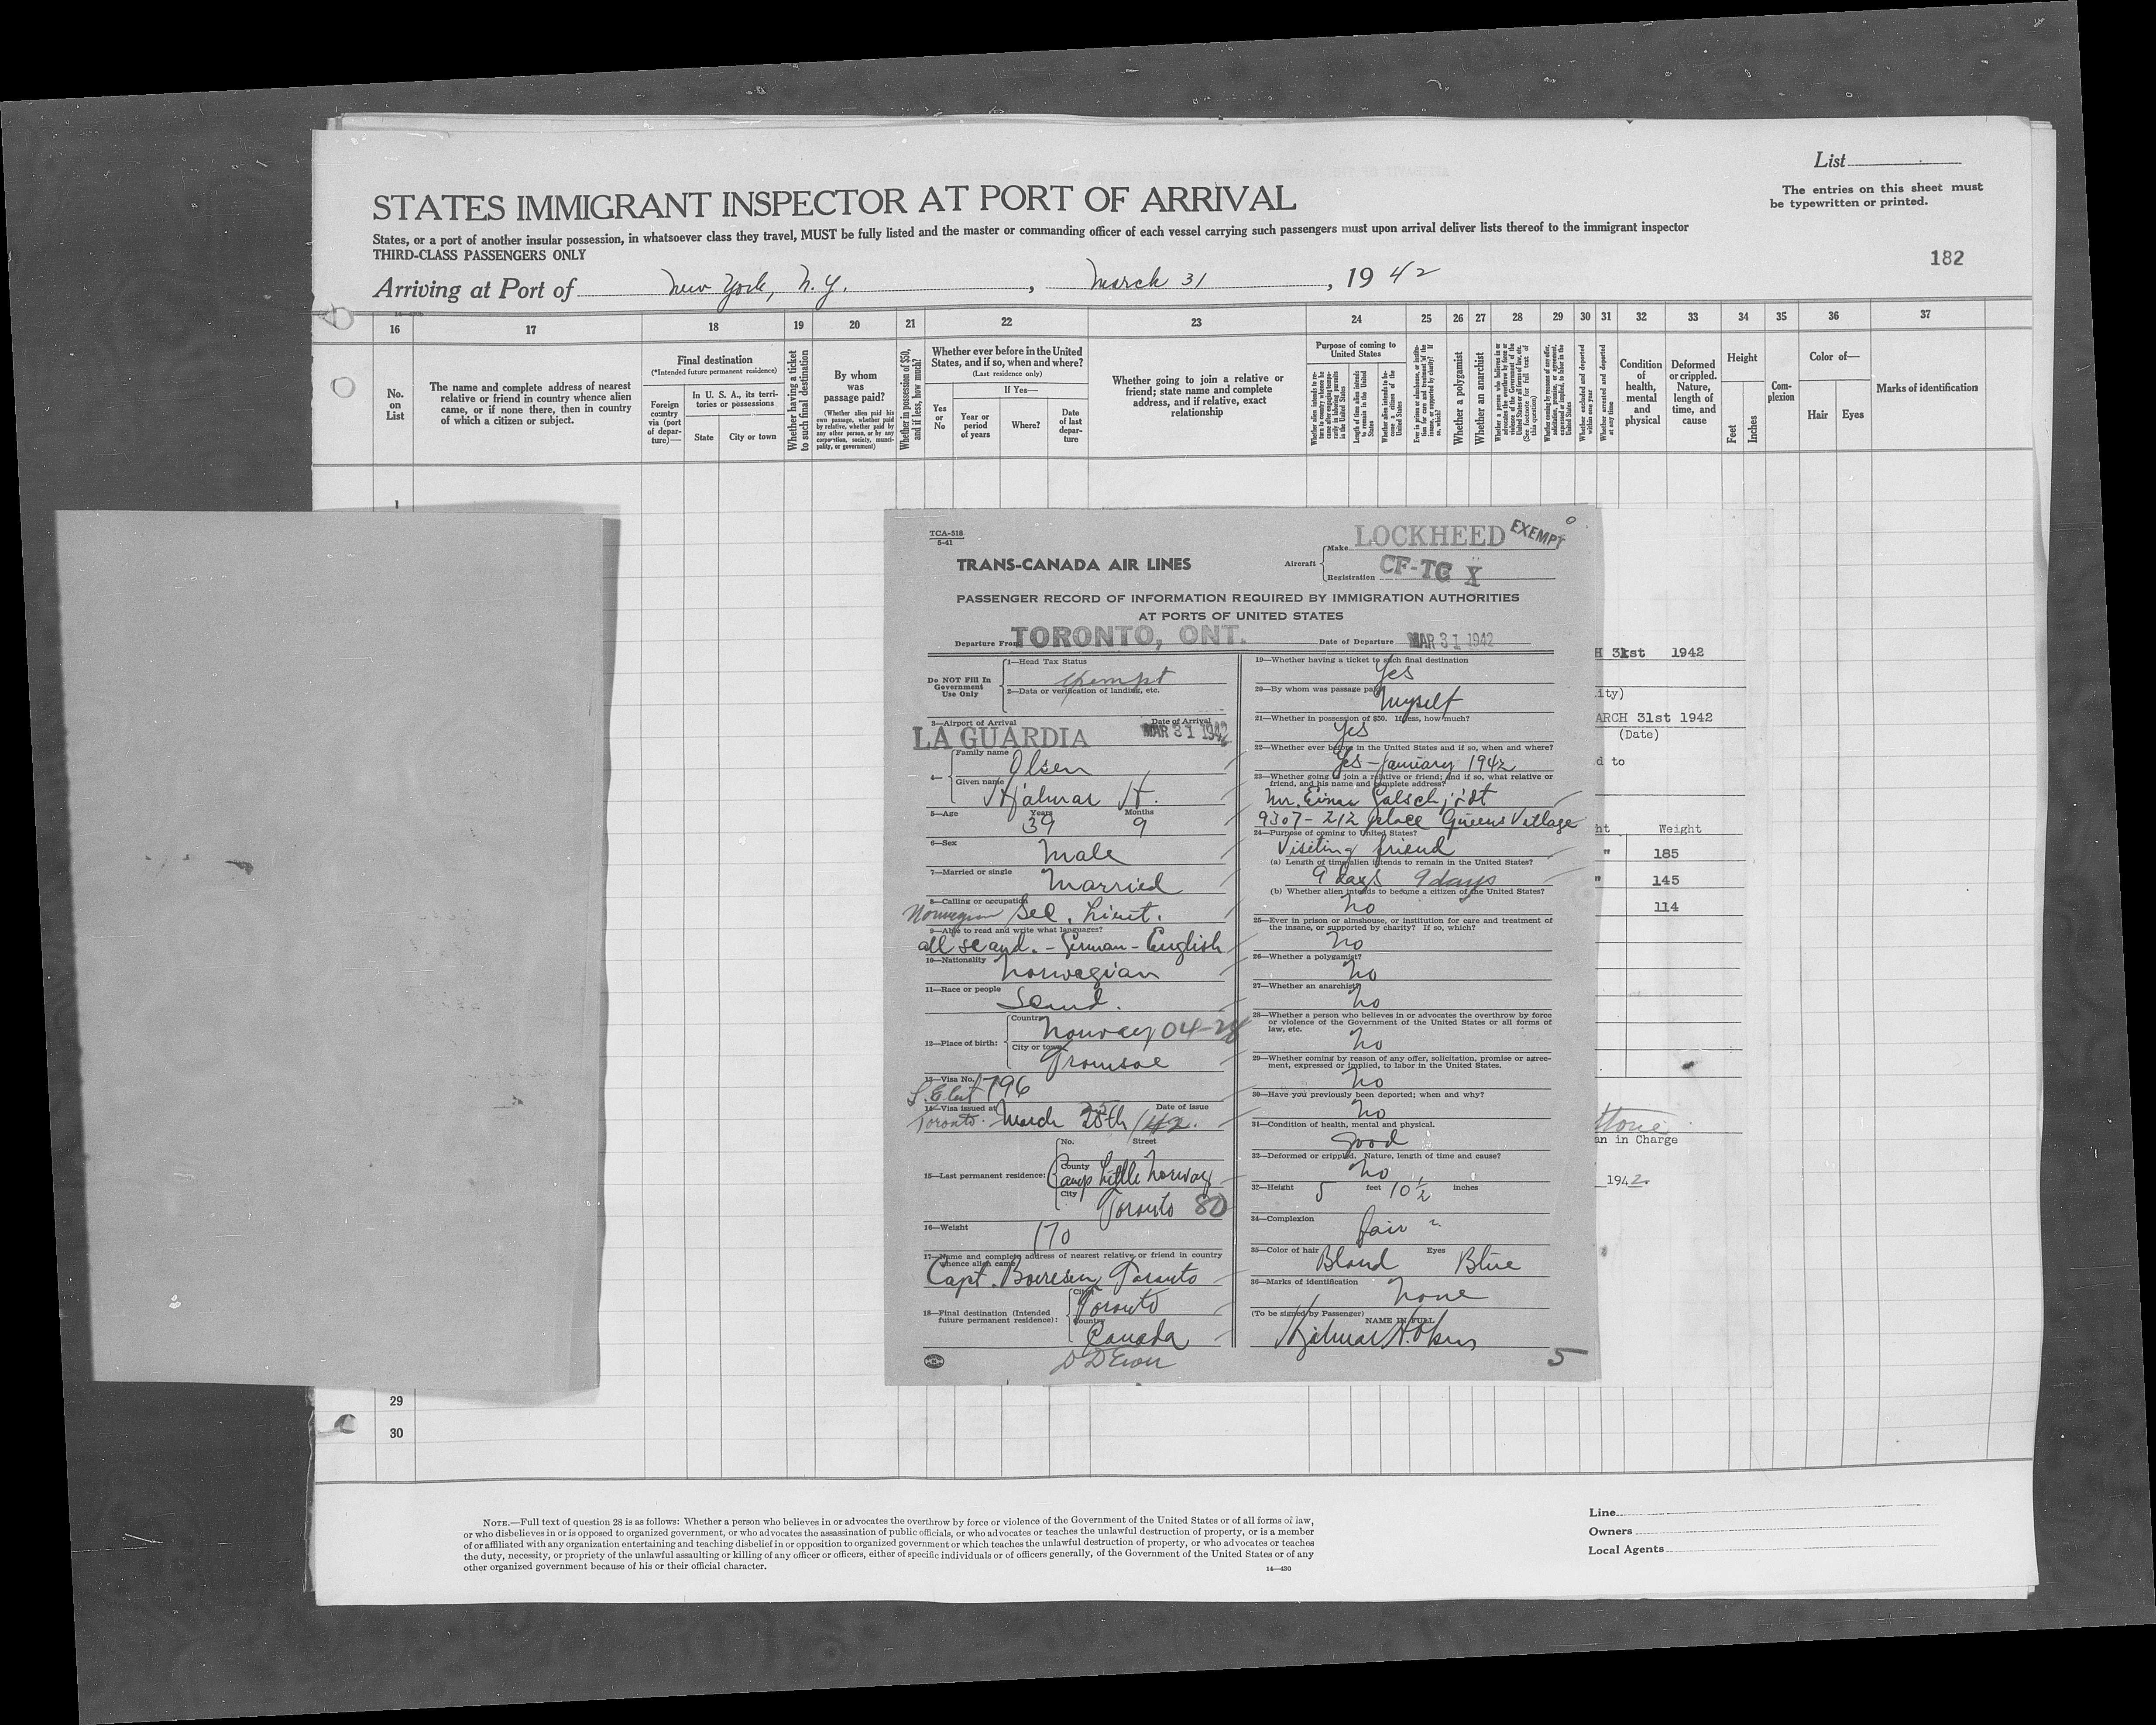 List
The entries on this sheet must
be typewritten or printed.
STATES IMMIGRANT INSPECTOR AT PORT OF ARRIVAL
States, or a port of another insular possession, in whatsoever class they travel, MUST be fully listed and the master or commanding officer of each vessel carrying such passengers must upon arrival deliver lists thereof to the immigrant inspector
THIRD-CLASS PASSENGERS ONLY
182
Arriving at Port of New York, N.Y., March 31, 1942
16 17 18 19 20 21 22 23 24 25 26 27 28 29 30 31 32 33 34 35 36 37
No. on List
The name and complete address of nearest
relative or friend in country whence alien
came, or if none there, then in country
of which a citizen or subject.
Final destination
(*Intended future permanent residence)
Foreign country via (port of departure)—
In U. S. A., its territories or possessions
State
City or town
Whether having a ticket to such final destination
By whom was passage paid?
(Whether alien paid his own passage, whether paid by relative, whether paid by any other person, or by any corporation, society, municipality, or government)
Whether in possession of $50, and if less, how much?
Whether ever before in the United
States, and if so, when and where?
(Last residence only)
Yes or No
If Yes—
Year or period of years
Where?
Date of last departure
Whether going to join a relative or
friend; state name and complete
address, and if relative, exact
relationship
Purpose of coming to United States
Length of time alien intends to remain in the United States
Whether alien intends to become a citizen of the United States
Whether a polygamist
Whether an anarchist
Whether excluded and deported within one year
Whether arrested and deported at any time
Condition of health, mental and physical
Deformed or crippled. Nature, length of time, and cause
Height
Feet
Inches
Complexion
Color of—
Hair
Eyes
Marks of identification
1
TCA-518
5-41
TRANS-CANADA AIR LINES
Aircraft
Make LOCKHEED
EXEMPT
Registration CF-TC X
PASSENGER RECORD OF INFORMATION REQUIRED BY IMMIGRATION AUTHORITIES
AT PORTS OF UNITED STATES
Departure From TORONTO, ONT.
Date of Departure MAR 31 1942
Do NOT Fill In
Government
Use Only
1—Head Tax Status
exempt
2—Data or verification of landing, etc.
3—Airport of Arrival LA GUARDIA
Date of Arrival MAR 31 1942
4—
Family name Olsen
Given name Hjalmar H.
5—Age Years 39 Months 9
6—Sex Male
7—Married or single Married
8—Calling or occupation Norwegian Sec. Lieut.
9—Able to read and write what languages?
all scand. - German - English
10—Nationality Norwegian
11—Race or people Scand.
12—Place of birth:
Country Norway 04-28
City or town Tromsoe
13—Visa No. 796
14—Visa issued at Toronto. March 25th /42. Date of issue
15—Last permanent residence:
No. Street
County Camp Little Norway
City Toronto 80
16—Weight 170
17—Name and complete address of nearest relative or friend in country
whence alien came
Capt. Boeresen, Toronto
18—Final destination (Intended
future permanent residence):
City Toronto
Country Canada
19—Whether having a ticket to such final destination
Yes
20—By whom was passage paid
Myself
21—Whether in possession of $50. If less, how much?
Yes
22—Whether ever before in the United States and if so, when and where?
Yes - January 1942
23—Whether going to join a relative or friend; and if so, what relative or
friend, and his name and complete address?
Mr. Einar Galschjödt
9307 - 212 place Queens Village
24—Purpose of coming to United States?
Visiting friend
(a) Length of time alien intends to remain in the United States?
9 days 9 days
(b) Whether alien intends to become a citizen of the United States?
No
25—Ever in prison or almshouse, or institution for care and treatment of
the insane, or supported by charity? If so, which?
No
26—Whether a polygamist?
No
27—Whether an anarchist?
No
28—Whether a person who believes in or advocates the overthrow by force
or violence of the Government of the United States or all forms of
law, etc.
No
29—Whether coming by reason of any offer, solicitation, promise or agree-
ment, expressed or implied, to labor in the United States.
No
30—Have you previously been deported; when and why?
No
31—Condition of health, mental and physical.
Good
32—Deformed or crippled. Nature, length of time and cause?
No
32—Height 5 feet 10 1/2 inches
34—Complexion fair
35—Color of hair Blond Eyes Blue
36—Marks of identification None
(To be signed by Passenger) NAME IN FULL
Hjalmar H. Olsen
5
H 31st 1942
ity)
ARCH 31st 1942
(Date)
d to
ht Weight
" 185
" 145
114
an in Charge
1942.
29
30
NOTE.—Full text of question 28 is as follows: Whether a person who believes in or advocates the overthrow by force or violence of the Government of the United States or of all forms of law,
or who disbelieves in or is opposed to organized government, or who advocates the assassination of public officials, or who advocates or teaches the unlawful destruction of property, or is a member
of or affiliated with any organization entertaining and teaching disbelief in or opposition to organized government or which teaches the unlawful destruction of property, or who advocates or teaches
the duty, necessity, or propriety of the unlawful assaulting or killing of any officer or officers, either of specific individuals or of officers generally, of the Government of the United States or of any
other organized government because of his or their official character.
14—430
Line
Owners
Local Agents